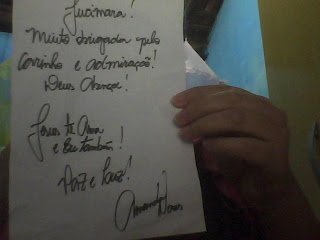 Lucimara!
Muito obrigada pelo
Carinho e admiração!
Deus abençoe!
Jesus te Ama
e Eu também!
Paz e Luz!
Amanda